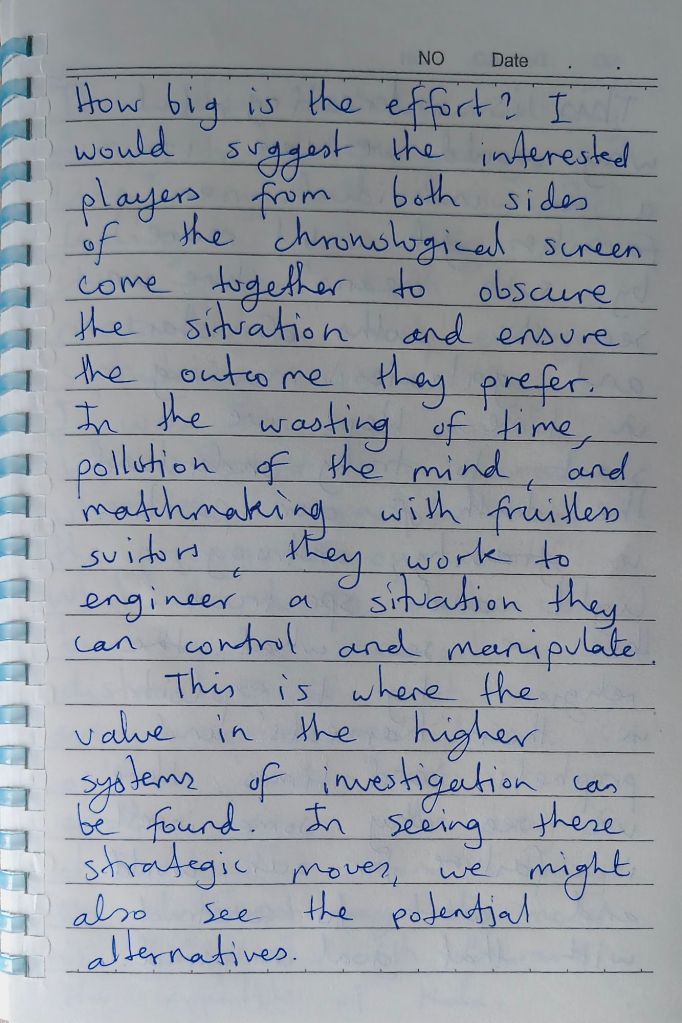 NO Date . .
How big is the effort? I
would suggest the interested
players from both sides
of the chronological screen
come together to obscure
the situation and ensure
the outcome they prefer.
In the wasting of time,
pollution of the mind, and
matchmaking with fruitless
suitors, they work to
engineer a situation they
can control and manipulate.
This is where the
value in the higher
systems of investigation can
be found. In seeing these
strategic moves, we might
also see the potential
alternatives.